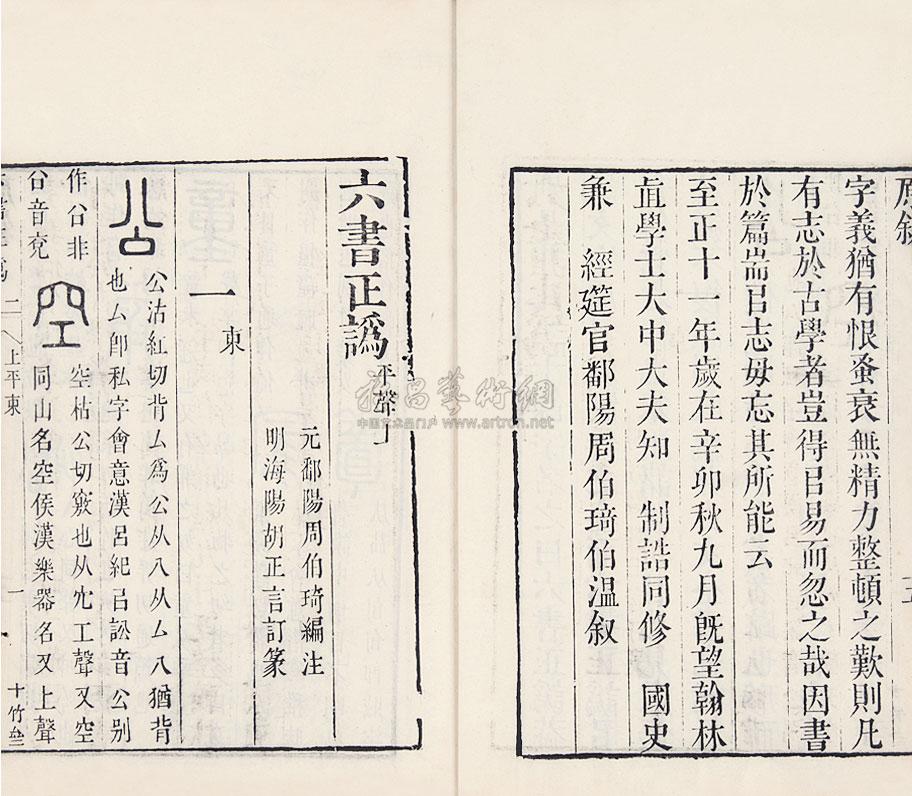 原敘
字義猶有恨蚤衰無精力整頓之歎則凡
有志於古學者豈得㠯易而忽之哉因書
於篇耑㠯志毋忘其所能云
至正十一年歲在辛卯秋九月旣望翰林
直學士大中大夫知 制誥同修 國史
兼 經筵官鄱陽周伯琦伯溫叙
六書正譌 平聲上
元鄱陽周伯琦編注
明海陽胡正言訂篆
一 東
公 公沽紅切背厶爲公从八从厶八猶背
也厶卽私字會意漢呂紀㠯訟音公别
作㕣非 空 空枯公切竅也从穴工聲又空
㕣音兖 同山名空侯漢樂器名又上聲
二 上平東 一 十竹
雅昌藝術網
中国艺术品门户 www.artron.net